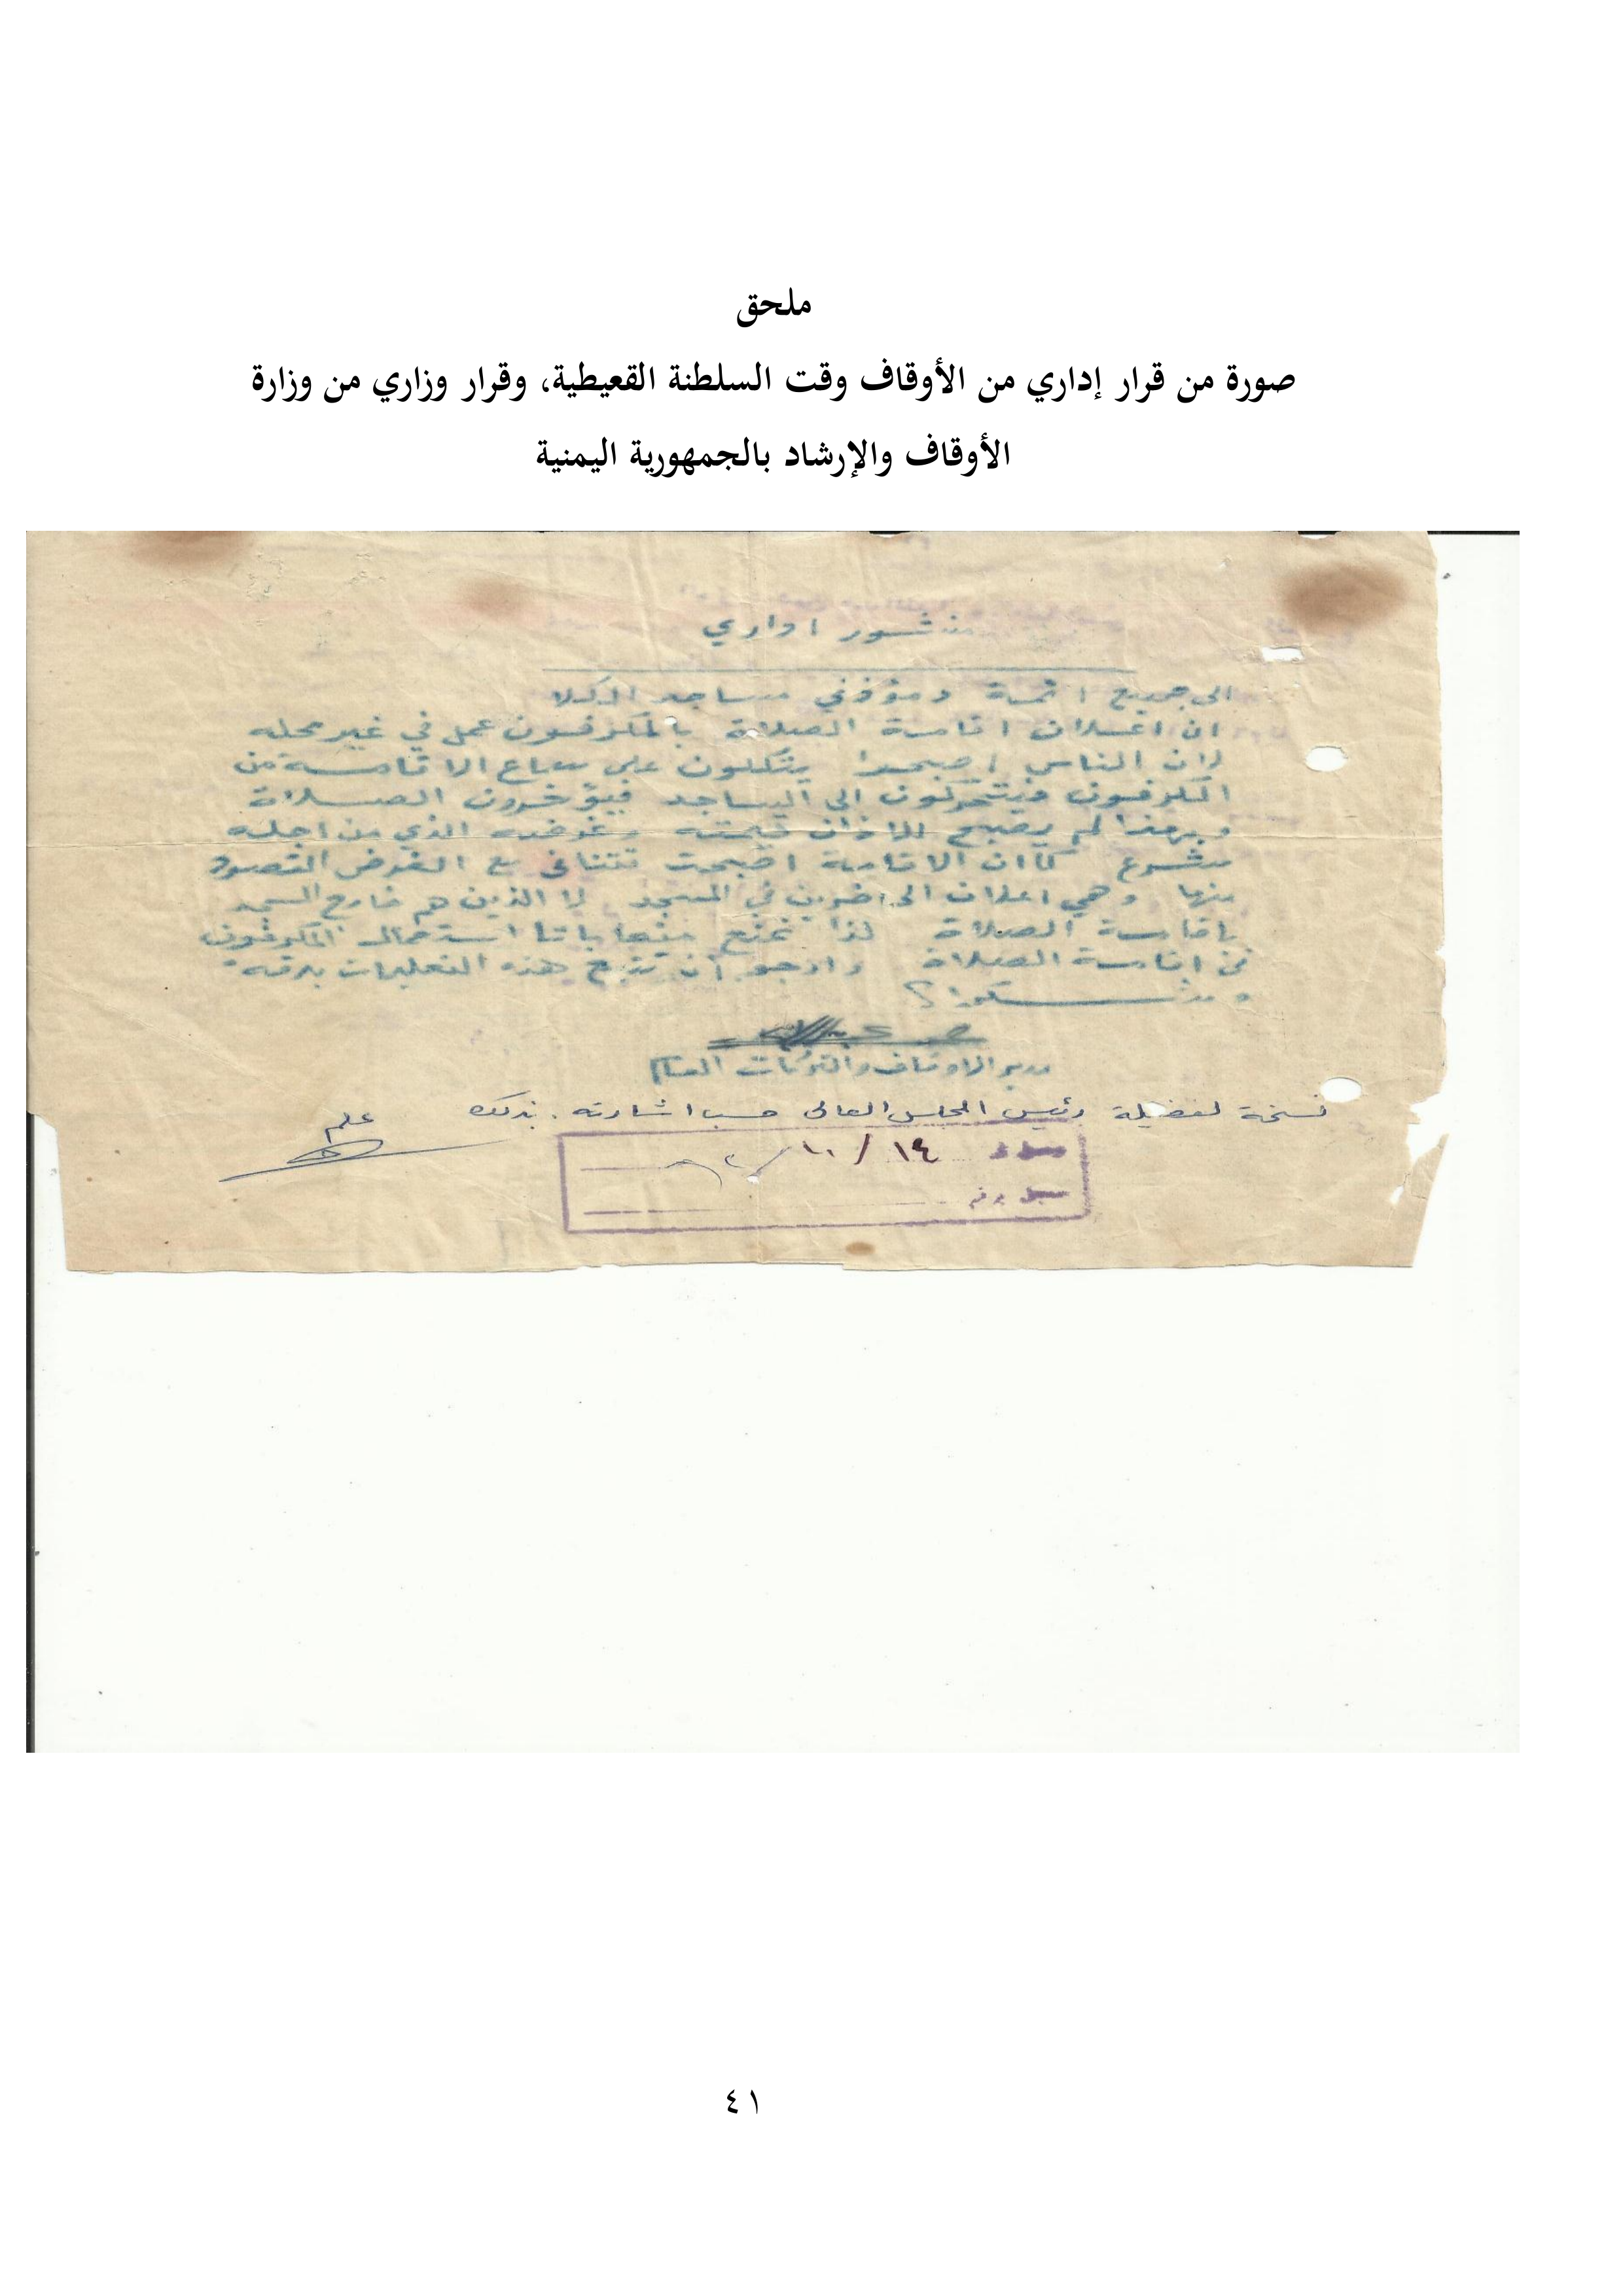 ملحق
صورة من قرار إداري من الأوقاف وقت السلطنة القعيطية، وقرار وزاري من وزارة
الأوقاف والإرشاد بالجمهورية اليمنية
منشور اداري
الى جميع ائمة ومؤذني مساجد المكلا
ان اعلان اقامة الصلاة بالمكرفون عمل في غير محله
لان الناس اصبحوا يتكلون على سماع الاقامة من
المكرفون فيتحركون الى المساجد فيؤخرون الصلاة
وبهذا لم يصبح للاذان قيمته وغرضه الذي من اجله
شرع كما ان الاقامة اصبحت تتنافى مع الغرض المقصود
منها وهي اعلان الحاضرين في المسجد لا الذين هم خارج المسجد
باقامة الصلاة لذا نمنع استعمال المكرفون
في اقامة الصلاة وارجو ان تتبع هذه التعليمات بدقه
مدير الاوقاف والتركات العام
نسخة لفضيلة رئيس المجلس العالي حسب اشارته بذلك
علم
١٤/١٠/
٤١